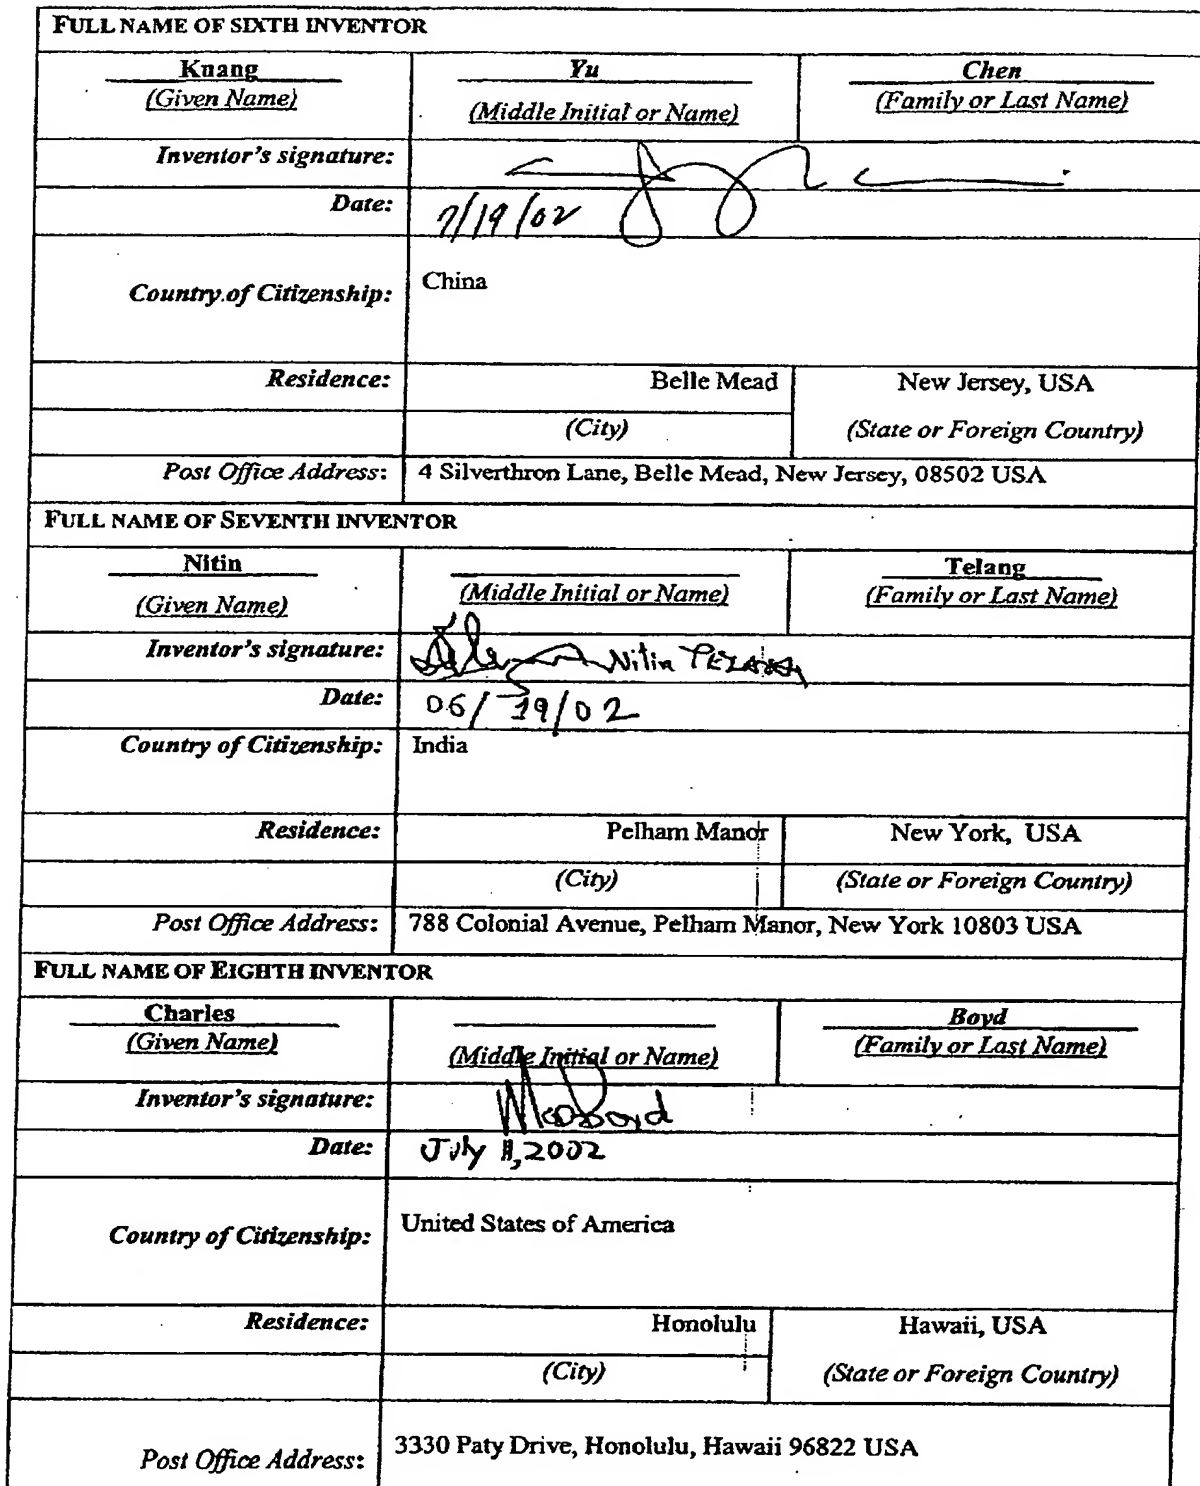 FULL NAME OF SIXTH INVENTOR
Knang Yu Chen
(Given Name) (Middle Initial or Name) (Family or Last Name)
Inventor's signature:
Date: 7/19/02
Country of Citizenship: China
Residence: Belle Mead New Jersey, USA
(City) (State or Foreign Country)
Post Office Address: 4 Silverthron Lane, Belle Mead, New Jersey, 08502 USA
FULL NAME OF SEVENTH INVENTOR
Nitin Telang
(Given Name) (Middle Initial or Name) (Family or Last Name)
Inventor's signature: Nitin TELANG
Date: 06/19/02
Country of Citizenship: India
Residence: Pelham Manor New York, USA
(City) (State or Foreign Country)
Post Office Address: 788 Colonial Avenue, Pelham Manor, New York 10803 USA
FULL NAME OF EIGHTH INVENTOR
Charles Boyd
(Given Name) (Middle Initial or Name) (Family or Last Name)
Inventor's signature:
Date: July 11, 2002
Country of Citizenship: United States of America
Residence: Honolulu Hawaii, USA
(City) (State or Foreign Country)
Post Office Address: 3330 Paty Drive, Honolulu, Hawaii 96822 USA